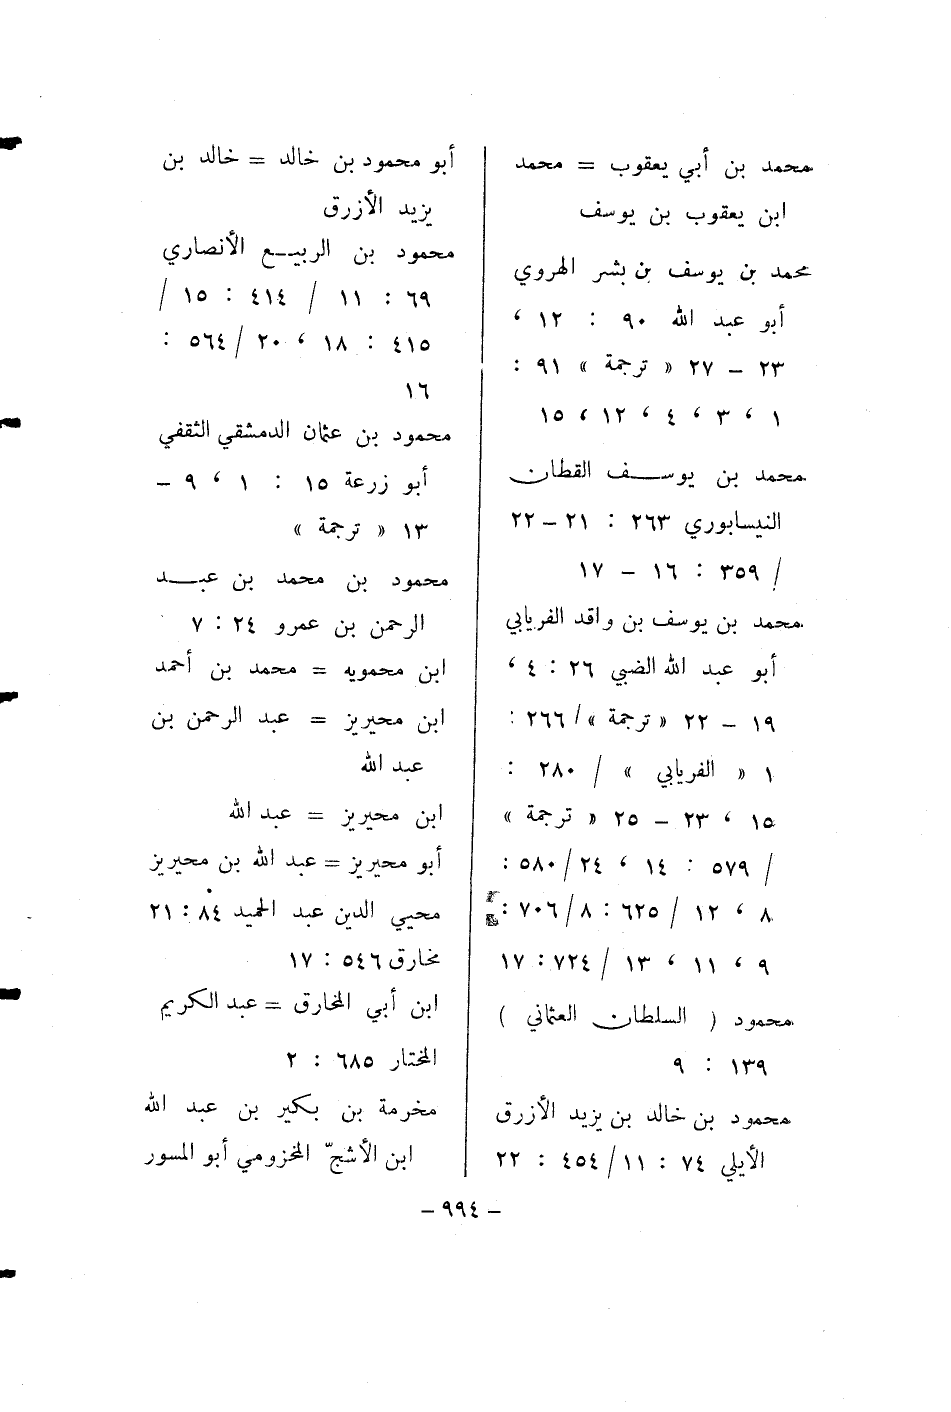 محمد بن أبي يعقوب = محمد
ابن يعقوب بن يوسف
محمد بن يوسف بن بشر الهروي
أبو عبد الله ٩٠ : ١٢ ،
٢٣ – ٢٧ « ترجمة » ٩١ :
١ ، ٣ ، ٤ ، ١٢ ، ١٥
محمد بن يوسف القطان
النيسابوري ٢٦٣ : ٢١ – ٢٢
/ ٣٥٩ : ١٦ – ١٧
محمد بن يوسف بن واقد الفريابي
أبو عبد الله الضبي ٢٦ : ٤ ،
١٩ – ٢٢ « ترجمة » / ٢٦٦ :
١ « الفريابي » / ٢٨٠ :
١٥ ، ٢٣ – ٢٥ « ترجمة »
/ ٥٧٩ : ١٤ ، ٢٤ / ٥٨٠ :
٨ ، ١٢ / ٦٢٥ : ٨ / ٧٠٦ :
٩ ، ١١ ، ١٣ / ٧٢٤ : ١٧
محمود ( السلطان العثماني )
١٣٩ : ٩
محمود بن خالد بن يزيد الأزرق
الأيلي ٧٤ : ١١ / ٤٥٤ : ٢٢
أبو محمود بن خالد = خالد بن
يزيد الأزرق
محمود بن الربيع الأنصاري
٦٩ : ١١ / ٤١٤ : ١٥ /
٤١٥ : ١٨ ، ٢٠ / ٥٦٤ :
١٦
محمود بن عثمان الدمشقي الثقفي
أبو زرعة ١٥ : ١ ، ٩ –
١٣ « ترجمة »
محمود بن محمد بن عبد
الرحمن بن عمرو ٢٤ : ٧
ابن محمويه = محمد بن أحمد
ابن محيريز = عبد الرحمن بن
عبد الله
ابن محيريز = عبد الله
أبو محيريز = عبد الله بن محيريز
محيي الدين عبد الحميد ٨٤ : ٢١
مخارق ٥٤٦ : ١٧
ابن أبي المخارق = عبد الكريم
المختار ٦٨٥ : ٢
مخرمة بن بكير بن عبد الله
ابن الأشجّ المخزومي أبو المسور
– ٩٩٤ –